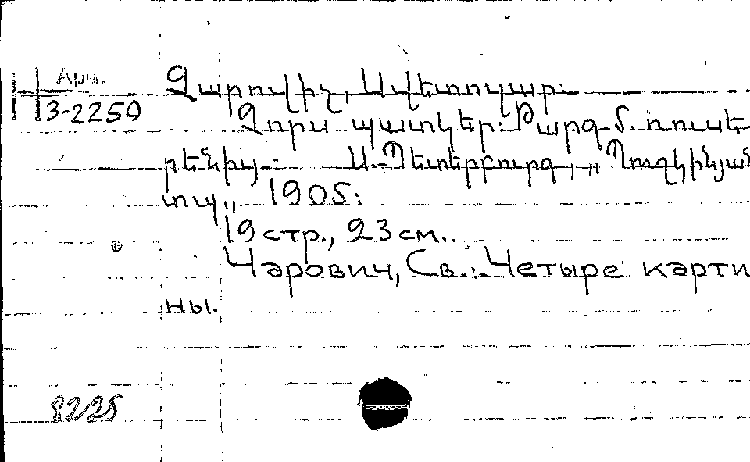 Арм.
3-2259
Չարովիչ, Սվետոզար.
Չորս պատկեր: Թարգմ. ռուսե-
րենից.: Ս-Պետերբուրգ, "Պուշկինյան
տպ.", 1905:
19 стр., 23 см..
Чарович, Св.: Четыре карти
ны.
8225